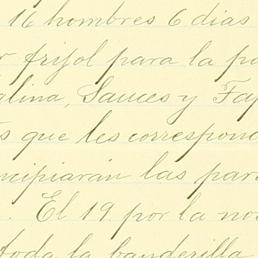 16 hombres 6 dias
frijol para la pa
lina, Sauces y Fa
que les correspon
ncipiarán las par
. El 19 por la no
toda la banderilla